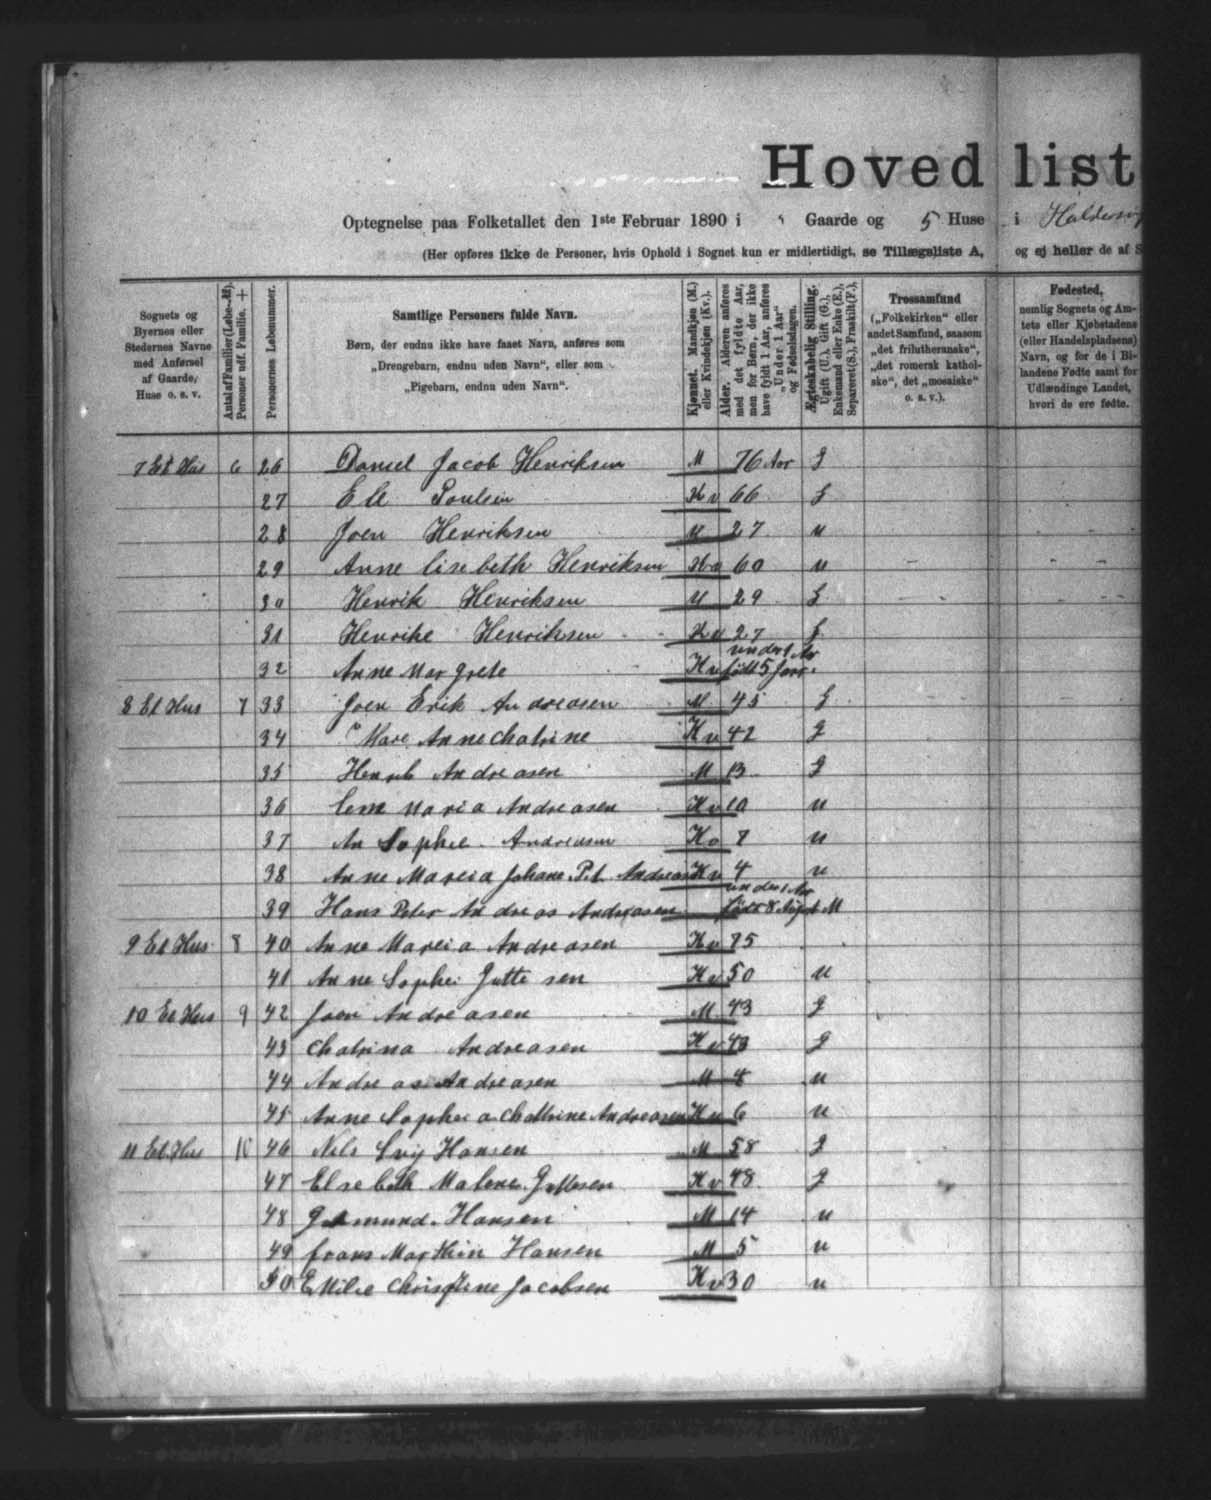 Hovedlist
Optegnelse paa Folketallet den 1ste Februar 1890 i " Gaarde og 5 Huse i
(Her opføres ikke de Personer, hvis Ophold i Sognet kun er midlertidigt, se Tillægsliste A, og ej heller de af S
Sognets og Byernes eller Stedernes Navne med Anførsel af Gaarde, Huse o. s. v.
Antal af Familier (Løbe-№). Personer udf. Familie. +
Personernes Løbenummer.
Samtlige Personers fulde Navn.
Børn, der endnu ikke have faaet Navn, anføres som
„Drengebarn, endnu uden Navn“, eller som
„Pigebarn, endnu uden Navn“.
Kjønnet. Mandkjøn (M.) eller Kvindekjøn (Kv.).
Alder. Alderen anføres med det fyldte Aar, men for Børn, der ikke have fyldt 1 Aar, anføres „Under 1 Aar“ og Fødselsdagen.
Ægteskabelig Stilling. Ugift (U.), Gift (G.), Enkemand eller Enke (E.), Separeret (S.), Fraskilt (F.).
Trossamfund
(„Folkekirken“ eller andet Samfund, saasom „det frilutheranske“, „det romersk katholske“, det „mosaiske“ o. s. v.).
Fødested,
nemlig Sognets og Amtets eller Kjøbstadens (eller Handelspladsens) Navn, og for de i Bilandene Fødte samt for Udlændinge Landet, hvori de ere fødte.
7 Et Hus 6 26 Daniel Jacob Henriksen M 76 Aar G
27 Ell Poulsen Kv 66 G
28 Joen Henriksen M 27 u
29 Anne Lisebeth Henriksen Kv 60 u
30 Henrik Henriksen M 29 G
31 Henrike Henriksen Kv 27 G
32 Anne Margrete Kv under 1 Aar født 5 Janr.
8 Et Hus 7 33 Joen Erik Andreasen M 45 G
34 Mare Annechatrine Kv 42 G
35 Henrik Andreasen M 13 G
36 Maria Andreasen Kv 10 u
37 An Sophie Andreasen Kv 7 u
38 Anne Mareia Johane Pet. Andreasen Kv 4 u
39 Hans Peter Andreas Andreasen under 1 Aar født 8 August M
9 Et Hus 8 40 Anne Mareia Andreasen Kv 75
41 Anne Sophie Guttesen Kv 50 u
10 Et Hus 9 42 Joen Andreasen M 43 G
43 Chatrina Andreasen Kv 43 G
44 Andreas Andreasen M 8 u
45 Anne Sophie a Chattrine Andreasen Kv 6 u
11 Et Hus 10 46 Nels Hansen M 58 G
47 Elsebeth Malene Guttesen Kv 48 G
48 Gutmund Hansen M 14 u
49 Frans Marthin Hansen M 5 u
50 Emilie Christine Jacobsen Kv 30 u